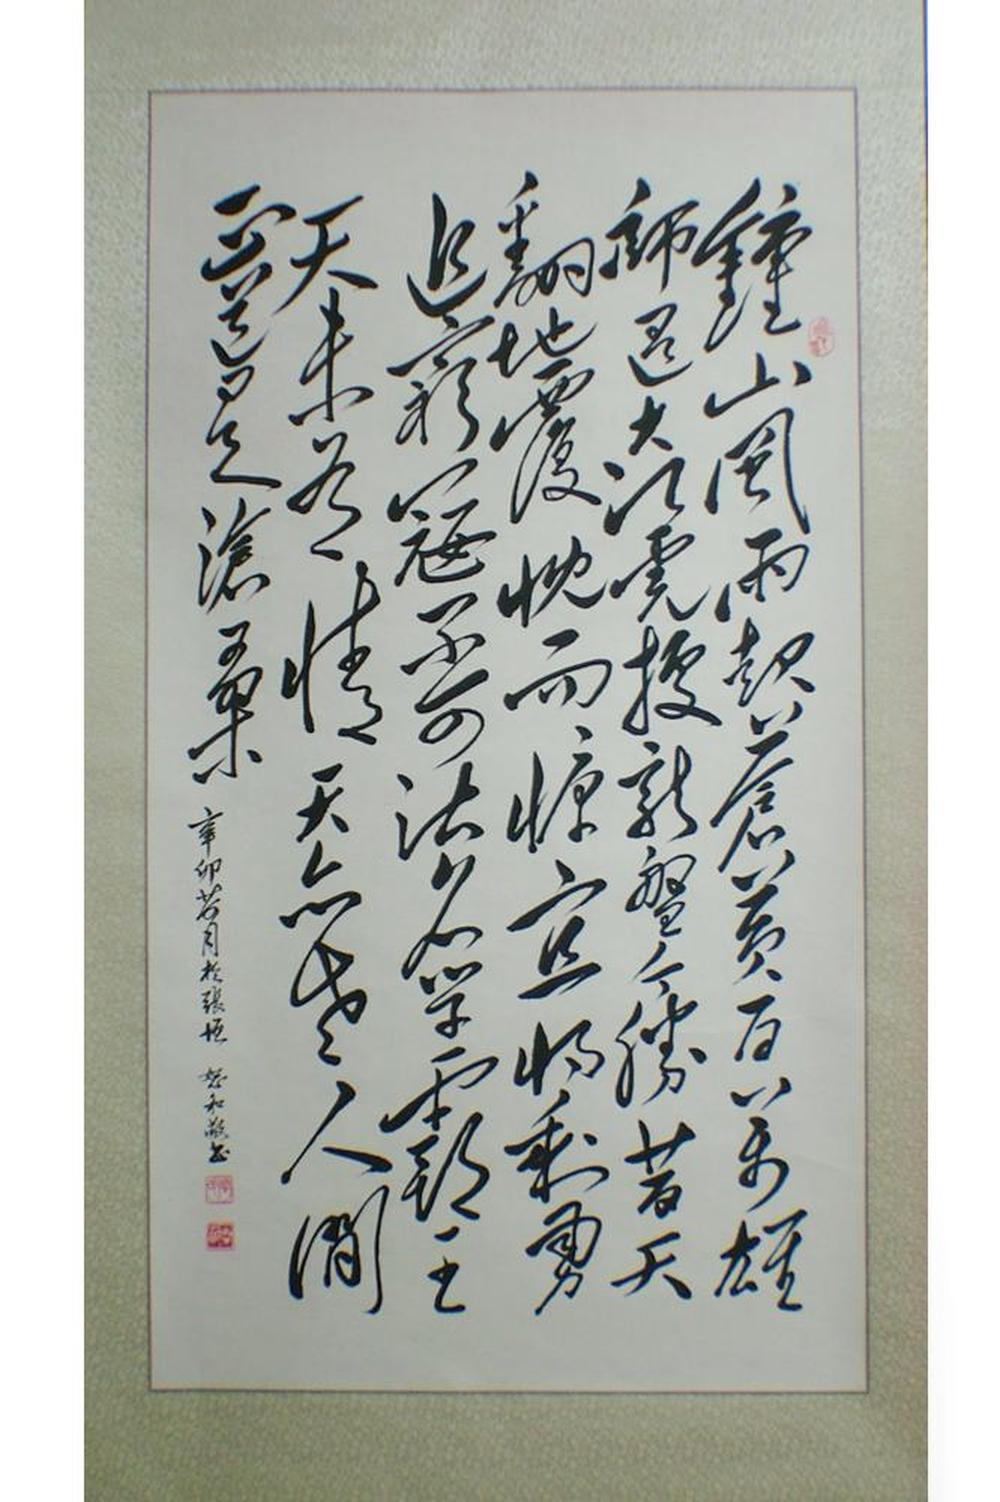 鍾山風雨起蒼黃百萬雄
師過大江虎據龍盤今勝昔天
翻地覆慨而慷宜將剩勇
追窮寇不可沽名學霸王
天若有情天亦老人間
正道是滄桑
辛卯荷月於張垣 和敬書